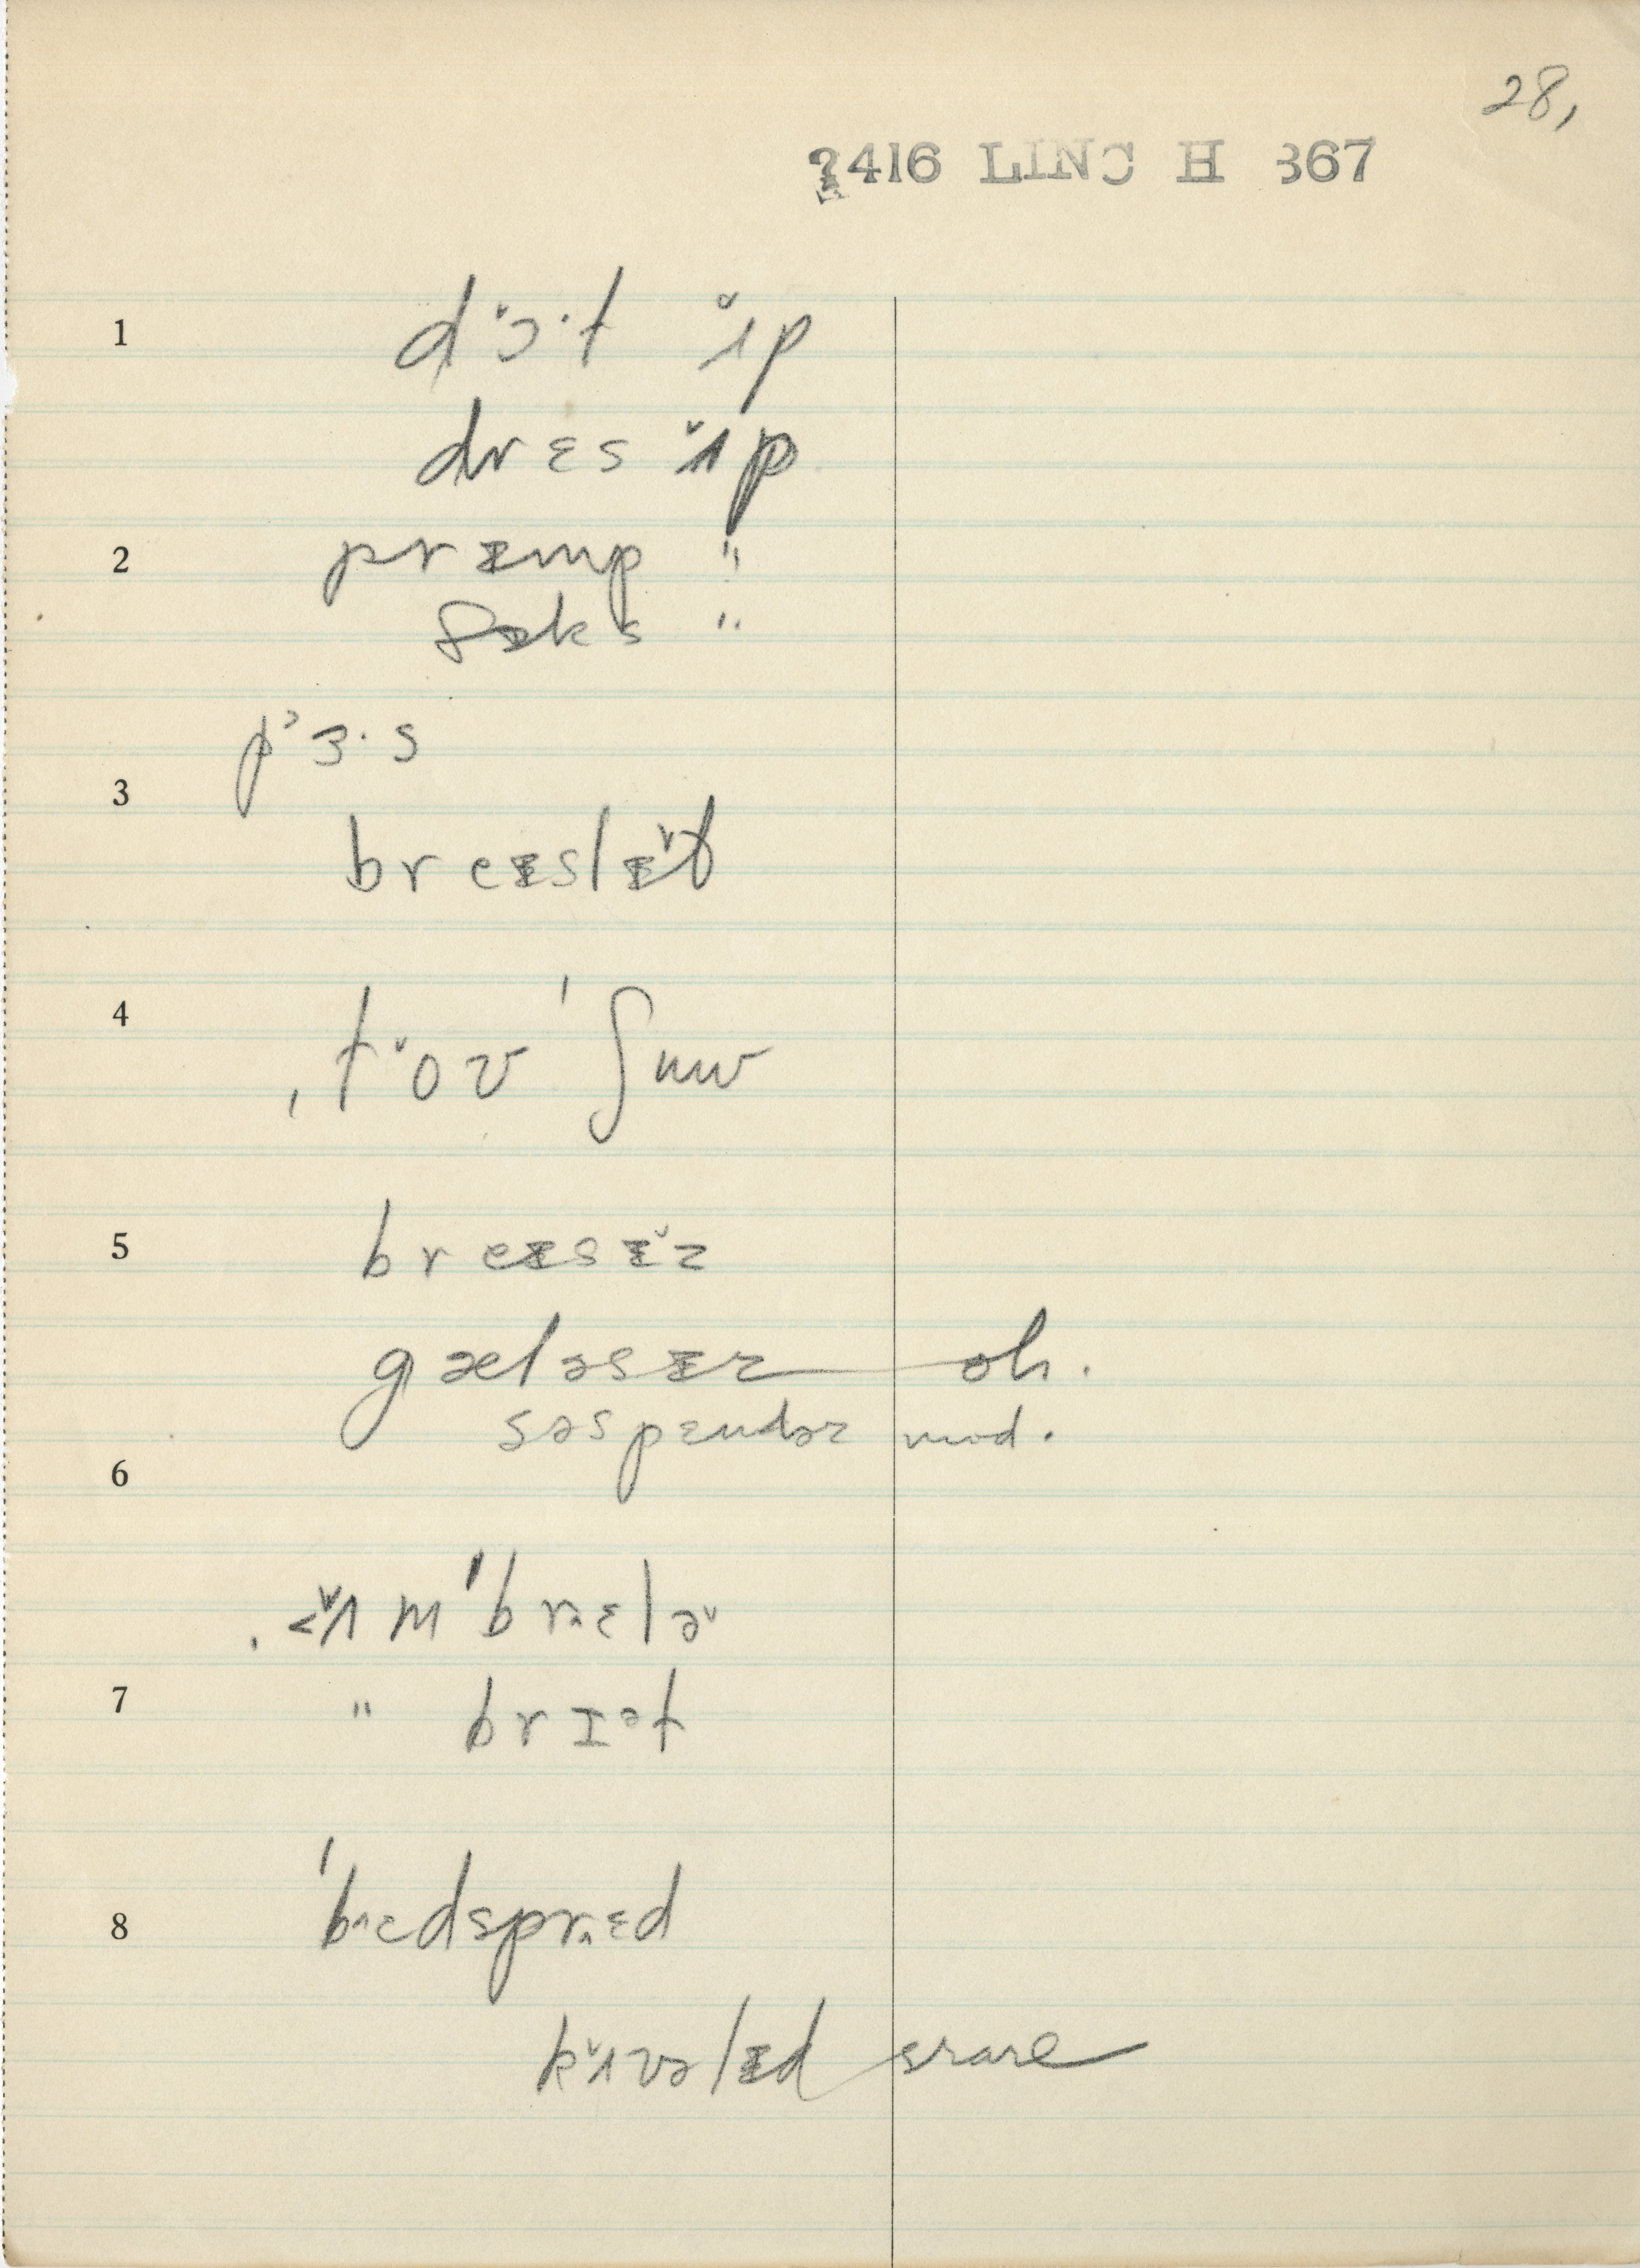 28,
2416 LINC H 367
1 dɔ̌·t ʌ̌p
drɛs ʌ̌p
2 prɪmp "
fɪks "
pʼɜ·s
3 breɪslɪ̌t
4 ˌtʼǒʊˈʃuw
5 breɪsɪ̌z
gæləsɪz oh.
səspɛndəz mod.
6
ˌʌ̌mˈbrɛlə̌
7 " brɪət
8 ˈbɛdsprɛd
kʌ̌vəlɪd rare